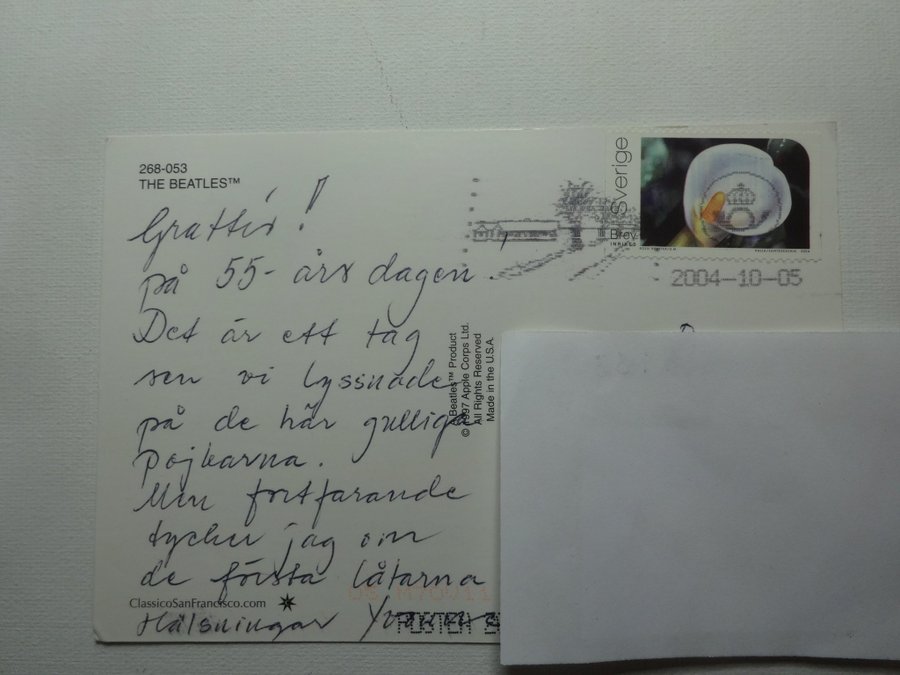 268-053
THE BEATLES™
Grattis!
på 55-års dagen.
Det är ett tag
sen vi lyssnade
på de här gulliga
pojkarna.
Men fortfarande
tycker jag om
de första låtarna
ClassicoSanFrancisco.com
Hälsningar
Beatles™ Product
© 1997 Apple Corps Ltd.
All Rights Reserved
Made in the U.S.A.
Sverige
Brev
INRIKES
2004-10-05
POSTEN